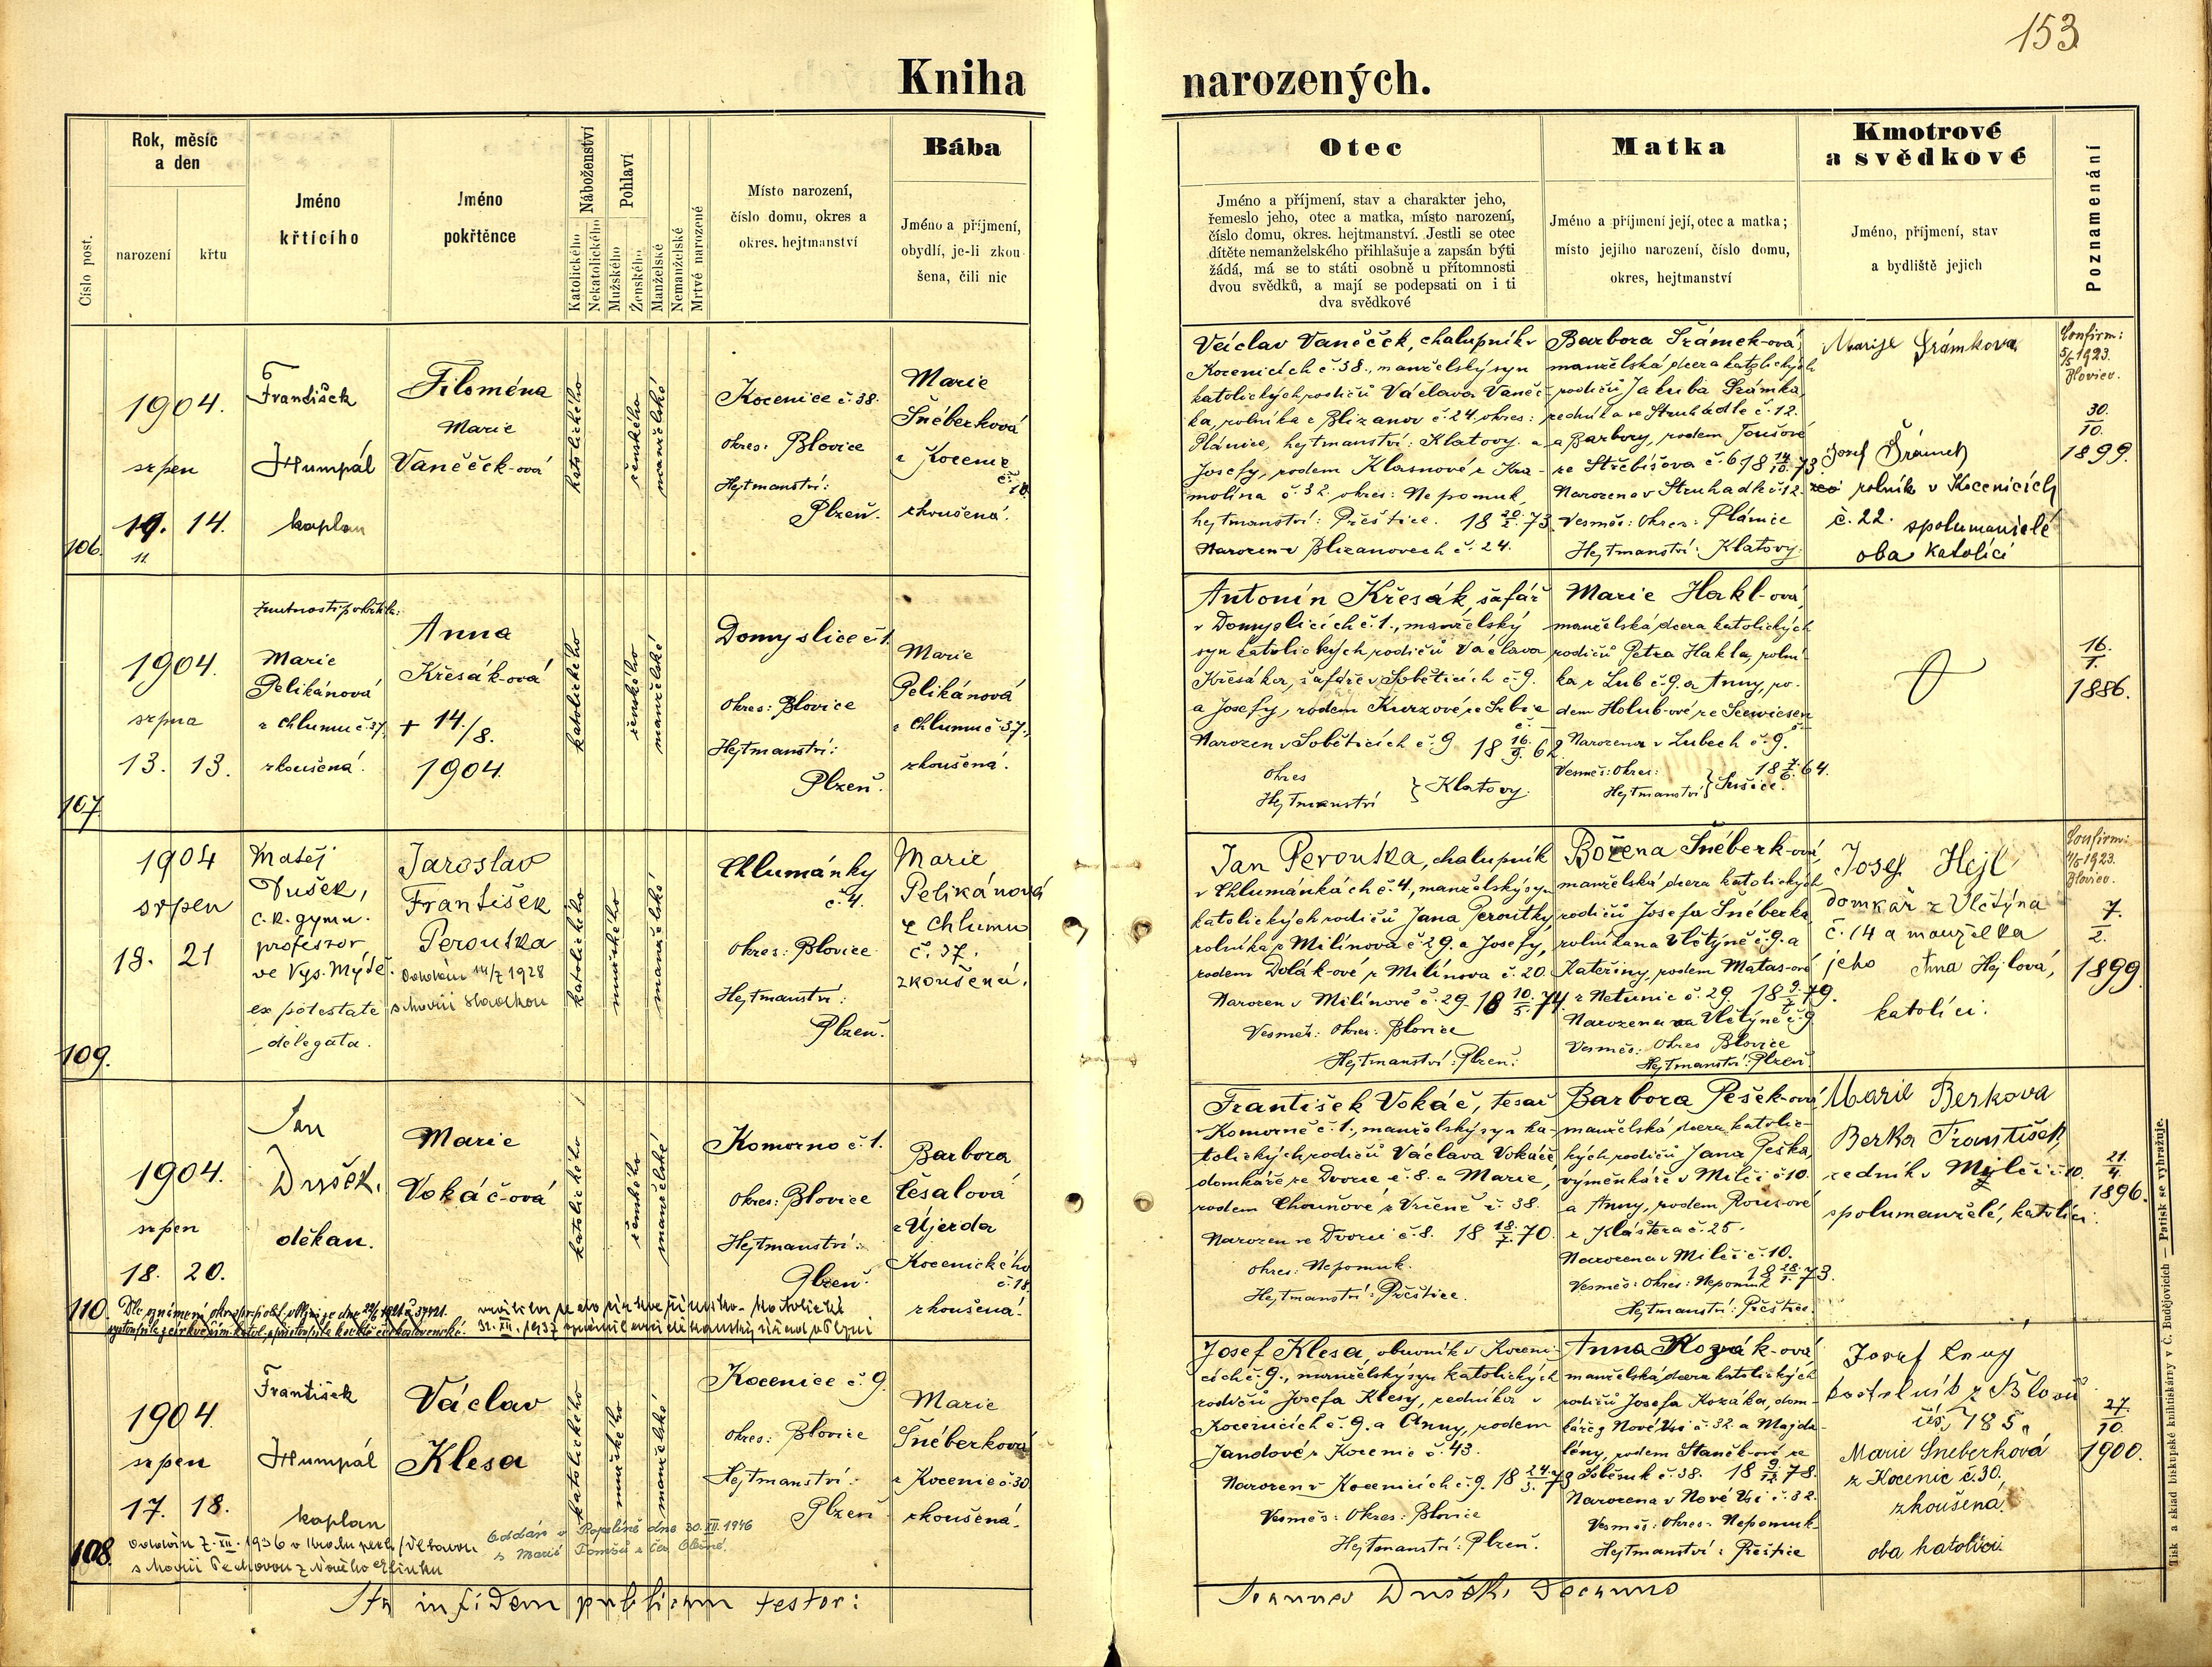 153
Kniha narozených.
Číslo post.
Rok, měsíc
a den
narození
křtu
Jméno
křtícího
Jméno
pokřtěnce
Náboženství
Katolického
Nekatolického
Pohlaví
Mužského
Ženského
Manželské
Nemanželské
Mrtvě narozené
Místo narození,
číslo domu, okres a
okres. hejtmanství
Bába
Jméno a příjmení,
obydlí, je-li zkou
šena, čili nic
Otec
Jméno a příjmení, stav a charakter jeho,
řemeslo jeho, otec a matka, místo narození,
číslo domu, okres. hejtmanství. Jestli se otec
dítěte nemanželského přihlašuje a zapsán býti
žádá, má se to státi osobně u přítomnosti
dvou svědků, a mají se podepsati on i ti
dva svědkové
Matka
Jméno a příjmení její, otec a matka;
místo jejího narození, číslo domu,
okres, hejtmanství
Kmotrové
a svědkové
Jméno, příjmení, stav
a bydliště jejich
Poznamenání
106.
1904.
srpen
19. 14.
11.
František
Humpál
kaplan
Filoména
Marie
Vaněček-ová
katolického
ženského
manželské
Kocenice č. 38.
Okres: Blovice
Hejtmanství:
Plzeň.
Marie
Šnéberková
z Kocenic
č. 18.
zkoušená.
Václav Vaněček, chalupník v
Kocenicích č. 38., manželský syn
katolických rodičů Václava Vaněč-
ka, rolníka z Blizanov č. 24. okres:
Plánice, hejtmanství: Klatovy. a
Josefy, rodem Klasnové z Kra-
molína č. 32. okres: Nepomuk,
hejtmanství: Přeštice. 18 20./2. 73.
Narozen v Blizanovech č. 24.
Barbora Šrámek-ová,
manželská dcera katolických
rodičů Jakuba Šrámka,
zedníka ve Struhadle č. 12.
a Barbory, rodem Toušové
ze Střebíšova č. 6 18 14./10. 73.
Narozena v Struhadle č. 12.
Vesměs: Okres: Plánice
Hejtmanství: Klatovy.
Marije Šrámkova
Josef Šrámek
rolník v Kocenicích
č. 22. spolumanželé
oba katolíci
Confirm:
5/5 1923.
Blovice.
30.
10.
1899.
107.
1904.
srpna
13. 13.
Marie
Pelikánová
z Chlumu č. 37,
zkoušená.
Anna
Křesák-ová
+ 14./8.
1904.
katolického
ženského
manželské
Domyslice č. 1.
Okres: Blovice
Hejtmanství:
Plzeň.
Marie
Pelikánová
z Chlumu č. 37.,
zkoušená.
Antonín Křesák, šafář
v Domyslicích č. 1., manželský
syn katolických rodičů Václava
Křesáka, šafáře v Soběticích č. 9.
a Josefy, rodem Kurzové ze Srbic
Narozen v Soběticích č. 9 18 16./9. 62
Okres
Hejtmanství } Klatovy.
Marie Hakl-ová,
manželská dcera katolických
rodičů Petra Hakla, rolní-
ka z Lub č. 9. a Anny, ro-
dem Holub-ové, ze Seewiesen
Narozena v Lubech č. 9.
18 7./6. 64.
Vesměs: Okres:
Hejtmanství } Sušice.
16.
1.
1886.
109.
1904
srpen
18. 21
Matěj
Dušek,
c. k. gymn.
profesor
ve Vys. Mýtě.
ex potestate
delegata.
Jaroslav
František
Peroutka
Oddán 14/7 1928
katolického
mužského
manželské
Chlumánky
č. 4.
Okres: Blovice
Hejtmanství:
Plzeň.
Marie
Pelikánová
z Chlumu
č. 37.
zkoušená.
Jan Peroutka, chalupník
v Chlumánkách č. 4, manželský syn
katolických rodičů Jana Peroutky,
rolníka z Milínova č. 29. a Josefy,
rodem Dolák-ové z Milínova č. 20.
Narozen v Milínově č. 29. 18 10./5. 74.
Vesměs: Okres: Blovice
Hejtmanství: Plzeň.
Božena Šnéberk-ová,
manželská dcera katolických
rodičů Josefa Šnéberka
rolníka na Vlčtýně č. 9. a
Kateřiny, rodem Matas-ové
z Netunic č. 29. 18 9./7. 79.
Narozena na Vlčtýně č. 9
Vesměs: Okres Blovice
Hejtmanství: Plzeň.
Josef Hejl
domkář z Vlčtýna
č. 14 a manželka
jeho Anna Hejlová,
katolíci.
Confirm:
5/5 1923.
Blovice.
7.
2.
1899
110.
1904.
srpen
18. 20.
Jan
Dušek.
děkan.
Marie
Vokáč-ová
katolického
ženského
manželské
Komorno č. 1.
Okres: Blovice
Hejtmanství:
Plzeň.
Barbora
Česalová
z Újezda
Kocenického
č. 18.
zkoušená.
František Vokáč, tesař
v Komorně č. 1., manželský syn ka-
tolických rodičů Václava Vokáče,
domkáře ze Dvorce č. 8. a Marie,
rodem Chouňové z Vrčeně č. 38.
Narozen ve Dvorci č. 8. 18 18./7. 70.
Okres: Nepomuk.
Hejtmanství: Přeštice.
Barbora Pešek-ová
manželská dcera katolic-
kých rodičů Jana Peška,
výměnkáře v Milči č. 10.
a Anny, rodem Rousové
z Kláštera č. 25.
Narozena v Milči č. 10.
18 28./1. 73.
Vesměs: Okres: Nepomuk
Hejtmanství: Přeštice.
Marie Berkova
Berka František
zedník v Milči č. 10.
spolumanželé, katolíci.
21.
4.
1896.
108.
1904.
srpen
17. 18.
František
Humpál
kaplan
Václav
Klesa
katolického
mužského
manželské
Kocenice č. 9.
Okres: Blovice
Hejtmanství:
Plzeň
Marie
Šnéberková
z Kocenic č. 30
zkoušená.
Oddán v Popelíně dne 30. XII. 1946
s Marií
Josef Klesa, obuvník v Koceni-
cích č. 9., manželský syn katolických
rodičů Josefa Klesy, zedníka v
Kocenicích č. 9. a Anny, rodem
Jandové z Kocenic č. 43.
Narozen v Kocenicích č. 9. 18 24./3. 78
Vesměs: Okres: Blovice
Hejtmanství: Plzeň.
Anna Kozák-ová
manželská dcera katolických
rodičů Josefa Kozáka, dom-
káře z Nové Vsi č. 32. a Majda-
lény, rodem Staněk-ové ze
č. 38. 18 9./12. 78.
Narozena v Nové Vsi č. 32.
Vesměs: Okres: Nepomuk
Hejtmanství: Přeštice
Josef
Marie Sneberková
z Kocenic č. 30.,
zkoušená
oba katolíci
27.
10.
1900.
Ita in fidem publicam testor:
Joannes Dušek, Decanus
Tisk a sklad biskupské knihtiskárny v Č. Budějovicích — Patisk se vyhražuje.